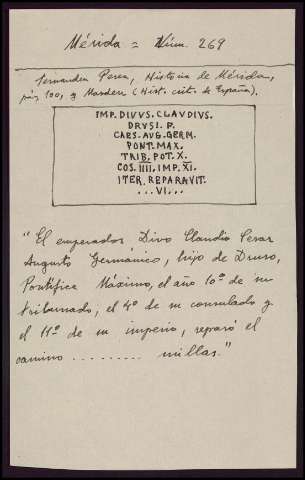 Mérida = Núm. 269
Fernandez Perez, Historia de Mérida,
pág. 100, y Masdeu (Hist. crit. de España).
IMP. DIVVS. CLAVDIVS.
DRVSI. F.
CAES. AUG. GERM.
PONT. MAX.
TRIB. POT. X.
COS. IIII. IMP. XI.
ITER. REPARAVIT.
...VI...
"El emperador Divo Claudio Cesar
Augusto Germánico, hijo de Druso,
Pontífice Máximo, el año 10º de su
tribunado, el 4º de su consulado y
el 11º de su imperio, reparó el
camino ......... millas."